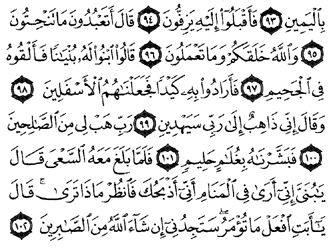 بِٱلۡيَمِينِ ٩٣ فَأَقۡبَلُوٓاْ إِلَيۡهِ يَزِفُّونَ ٩٤ قَالَ أَتَعۡبُدُونَ مَا تَنۡحِتُونَ
٩٥ وَٱللَّهُ خَلَقَكُمۡ وَمَا تَعۡمَلُونَ ٩٦ قَالُواْ ٱبۡنُواْ لَهُۥ بُنۡيَٰنٗا فَأَلۡقُوهُ
فِي ٱلۡجَحِيمِ ٩٧ فَأَرَادُواْ بِهِۦ كَيۡدٗا فَجَعَلۡنَٰهُمُ ٱلۡأَسۡفَلِينَ ٩٨
وَقَالَ إِنِّي ذَاهِبٌ إِلَىٰ رَبِّي سَيَهۡدِينِ ٩٩ رَبِّ هَبۡ لِي مِنَ ٱلصَّٰلِحِينَ
١٠٠ فَبَشَّرۡنَٰهُ بِغُلَٰمٍ حَلِيمٖ ١٠١ فَلَمَّا بَلَغَ مَعَهُ ٱلسَّعۡيَ قَالَ
يَٰبُنَيَّ إِنِّيٓ أَرَىٰ فِي ٱلۡمَنَامِ أَنِّيٓ أَذۡبَحُكَ فَٱنظُرۡ مَاذَا تَرَىٰۚ قَالَ
يَٰٓأَبَتِ ٱفۡعَلۡ مَا تُؤۡمَرُۖ سَتَجِدُنِيٓ إِن شَآءَ ٱللَّهُ مِنَ ٱلصَّٰبِرِينَ ١٠٢